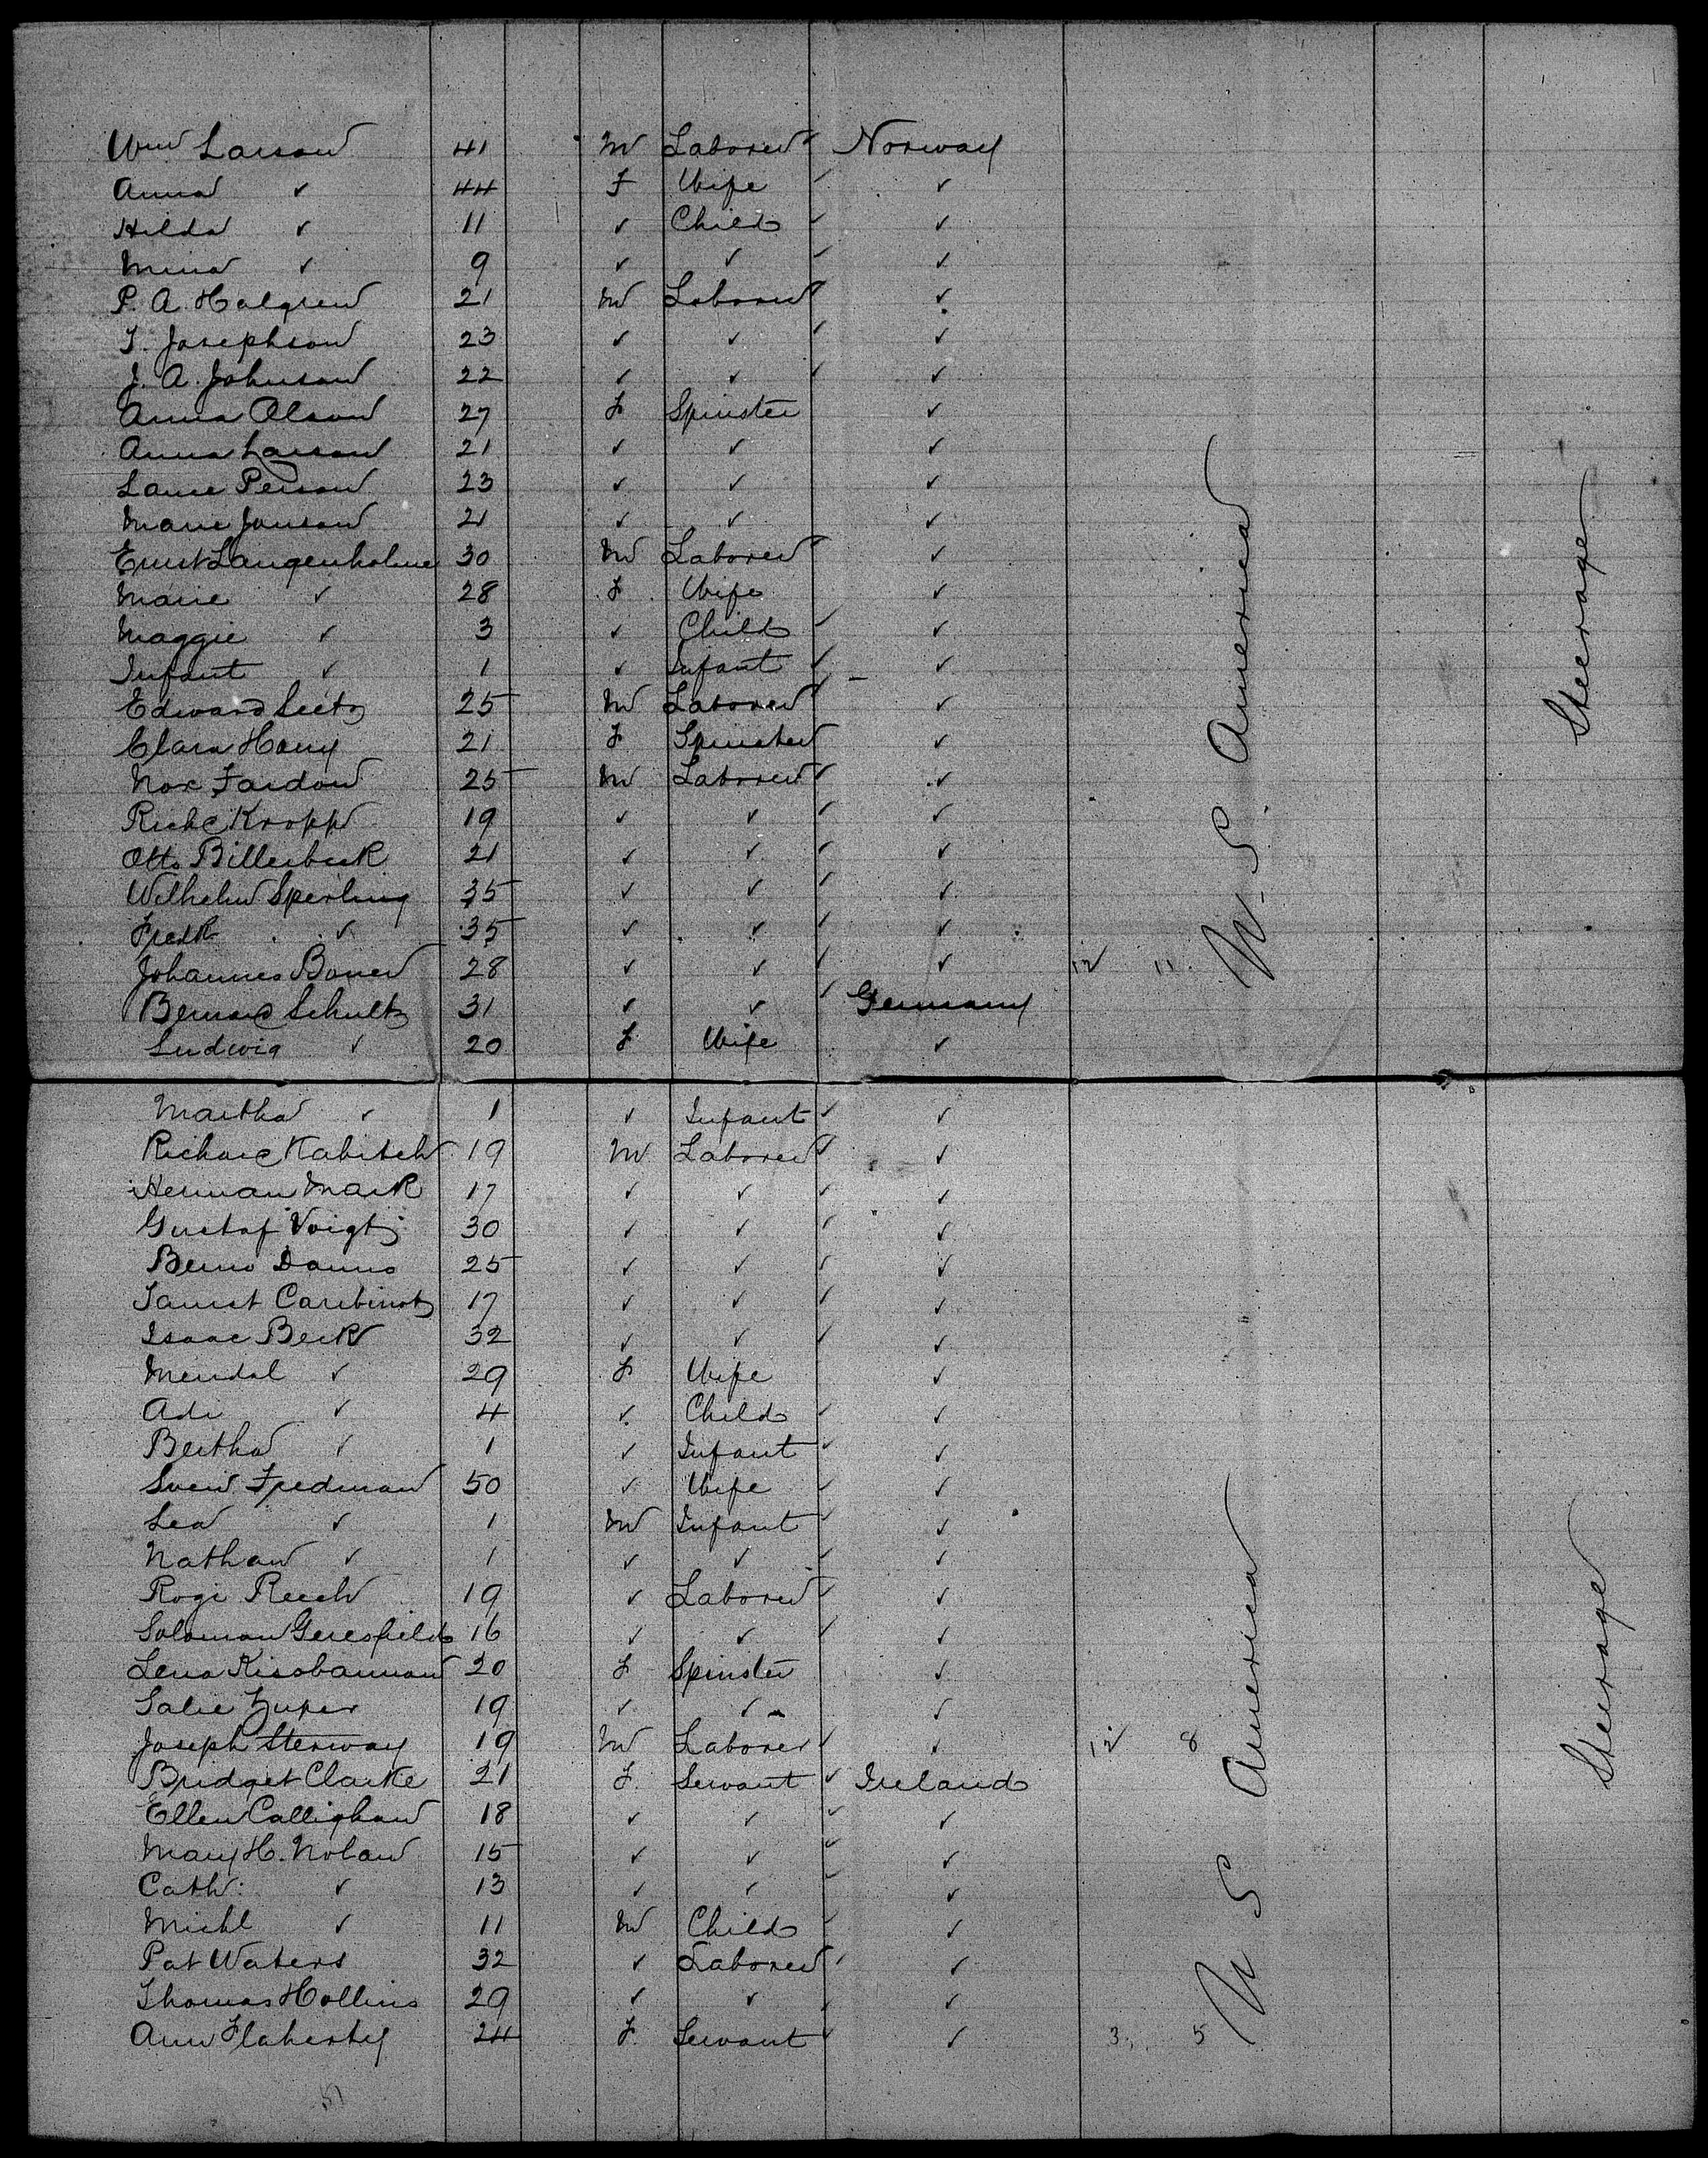 Wm Larson 41 M Laborer Norway
Anna ✓ 44 F Wife ✓ ✓
Hilda ✓ 11 ✓ Child ✓ ✓
Mina ✓ 9 ✓ ✓ ✓ ✓
P. A. Halgren 21 M Laborer ✓
J. Josephson 23 ✓ ✓ ✓ ✓
J. A. Johnson 22 ✓ ✓ ✓ ✓
Anna Olson 27 F Spinster ✓
Anna Larson 21 ✓ ✓ ✓
Person 23 ✓ ✓ ✓
Marie Jonson 21 ✓ ✓ ✓
Ernst Langenholme 30 M Laborer ✓
Marie ✓ 28 F Wife ✓
Maggie ✓ 3 ✓ Child ✓ ✓
Infant ✓ 1 ✓ Infant ✓ ✓
Edward 25 M Laborer ✓
Clara 21 F Spinster ✓
25 M Laborer ✓ ✓
Richd Kropp 19 ✓ ✓ ✓ ✓
Otto Billerbeck 21 ✓ ✓ ✓ ✓
Wilhelm Sperling 35 ✓ ✓ ✓ ✓
Fredk ✓ 35 ✓ ✓ ✓ ✓
Johannes Boner 28 ✓ ✓ ✓ ✓ 12 11
Bernard Schultz 31 ✓ ✓ ✓ Germany
Ludwig ✓ 20 F Wife ✓
U S America
Steerage
Martha ✓ 1 ✓ Infant ✓ ✓
Richard Kabitch 19 M Laborer ✓ ✓
Herman Mark 17 ✓ ✓ ✓ ✓
Gustaf Voigt 30 ✓ ✓ ✓ ✓
Benno Danno 25 ✓ ✓ ✓ ✓
17 ✓ ✓ ✓ ✓
Isaac Beck 32 ✓ ✓ ✓ ✓
Mendal ✓ 29 F Wife ✓
Adi ✓ 4 ✓ Child ✓ ✓
Bertha ✓ 1 ✓ Infant ✓ ✓
Fredman 50 ✓ Wife ✓ ✓
Lea ✓ 1 M Infant ✓ ✓
Nathan ✓ 1 ✓ ✓ ✓ ✓
Rogi 19 ✓ Laborer ✓ ✓
Soloman Geresfield 16 ✓ ✓ ✓ ✓
Lena 20 F Spinster ✓
Salie 19 ✓ ✓ ✓
Joseph Sterway 19 M Laborer ✓ ✓ 12 8
Bridget Clarke 21 F Servant ✓ Ireland
Ellen Callighan 18 ✓ ✓ ✓ ✓
Mary H. Nolan 15 ✓ ✓ ✓ ✓
Cath: ✓ 13 ✓ ✓ ✓ ✓
Michl ✓ 11 M Child ✓ ✓
Pat Waters 32 ✓ Laborer ✓ ✓
Thomas Hollins 29 ✓ ✓ ✓ ✓
Ann Flaherty 24 F Servant ✓ ✓ 3 5
U S America
Steerage
51